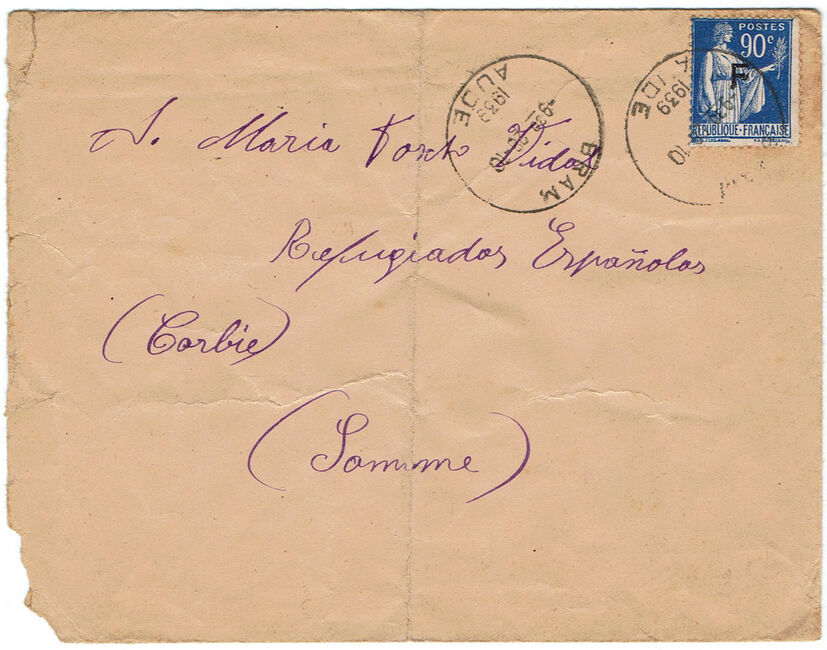 POSTES
90c
F
RÉPUBLIQUE-FRANÇAISE
BRAM
AUDE
1939
S. Maria Font Vidal
Refugiados Españolas
(Corbie)
(Somme)